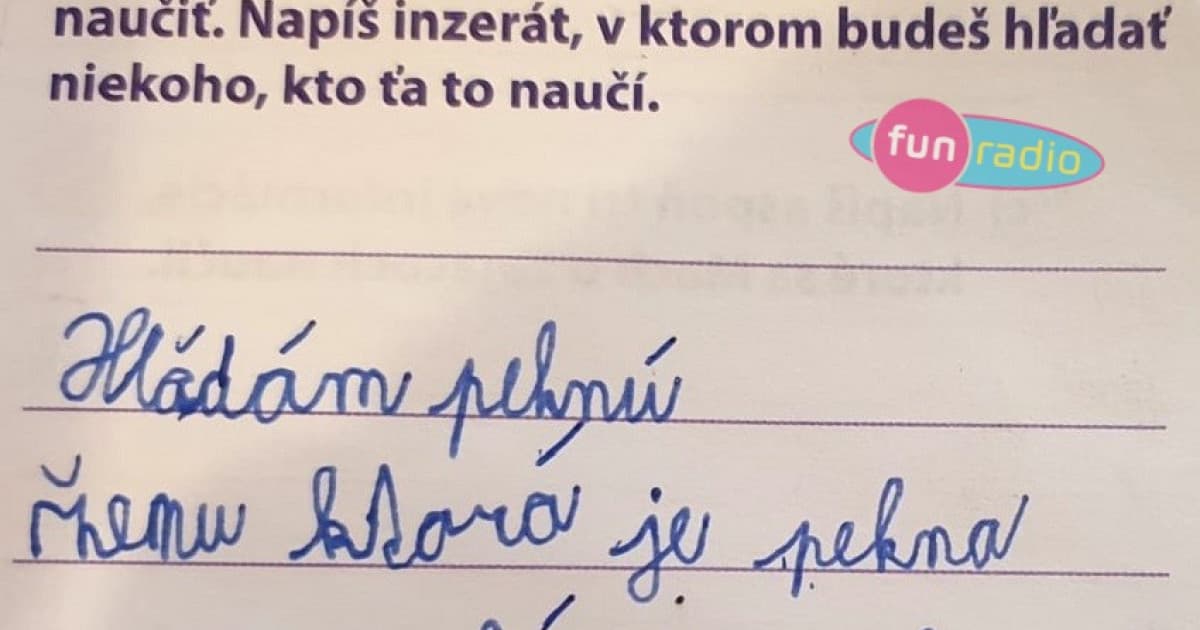 naučiť. Napíš inzerát, v ktorom budeš hľadať
niekoho, kto ťa to naučí.
fun radio
Hládám peknú
ženu ktorá je pekna